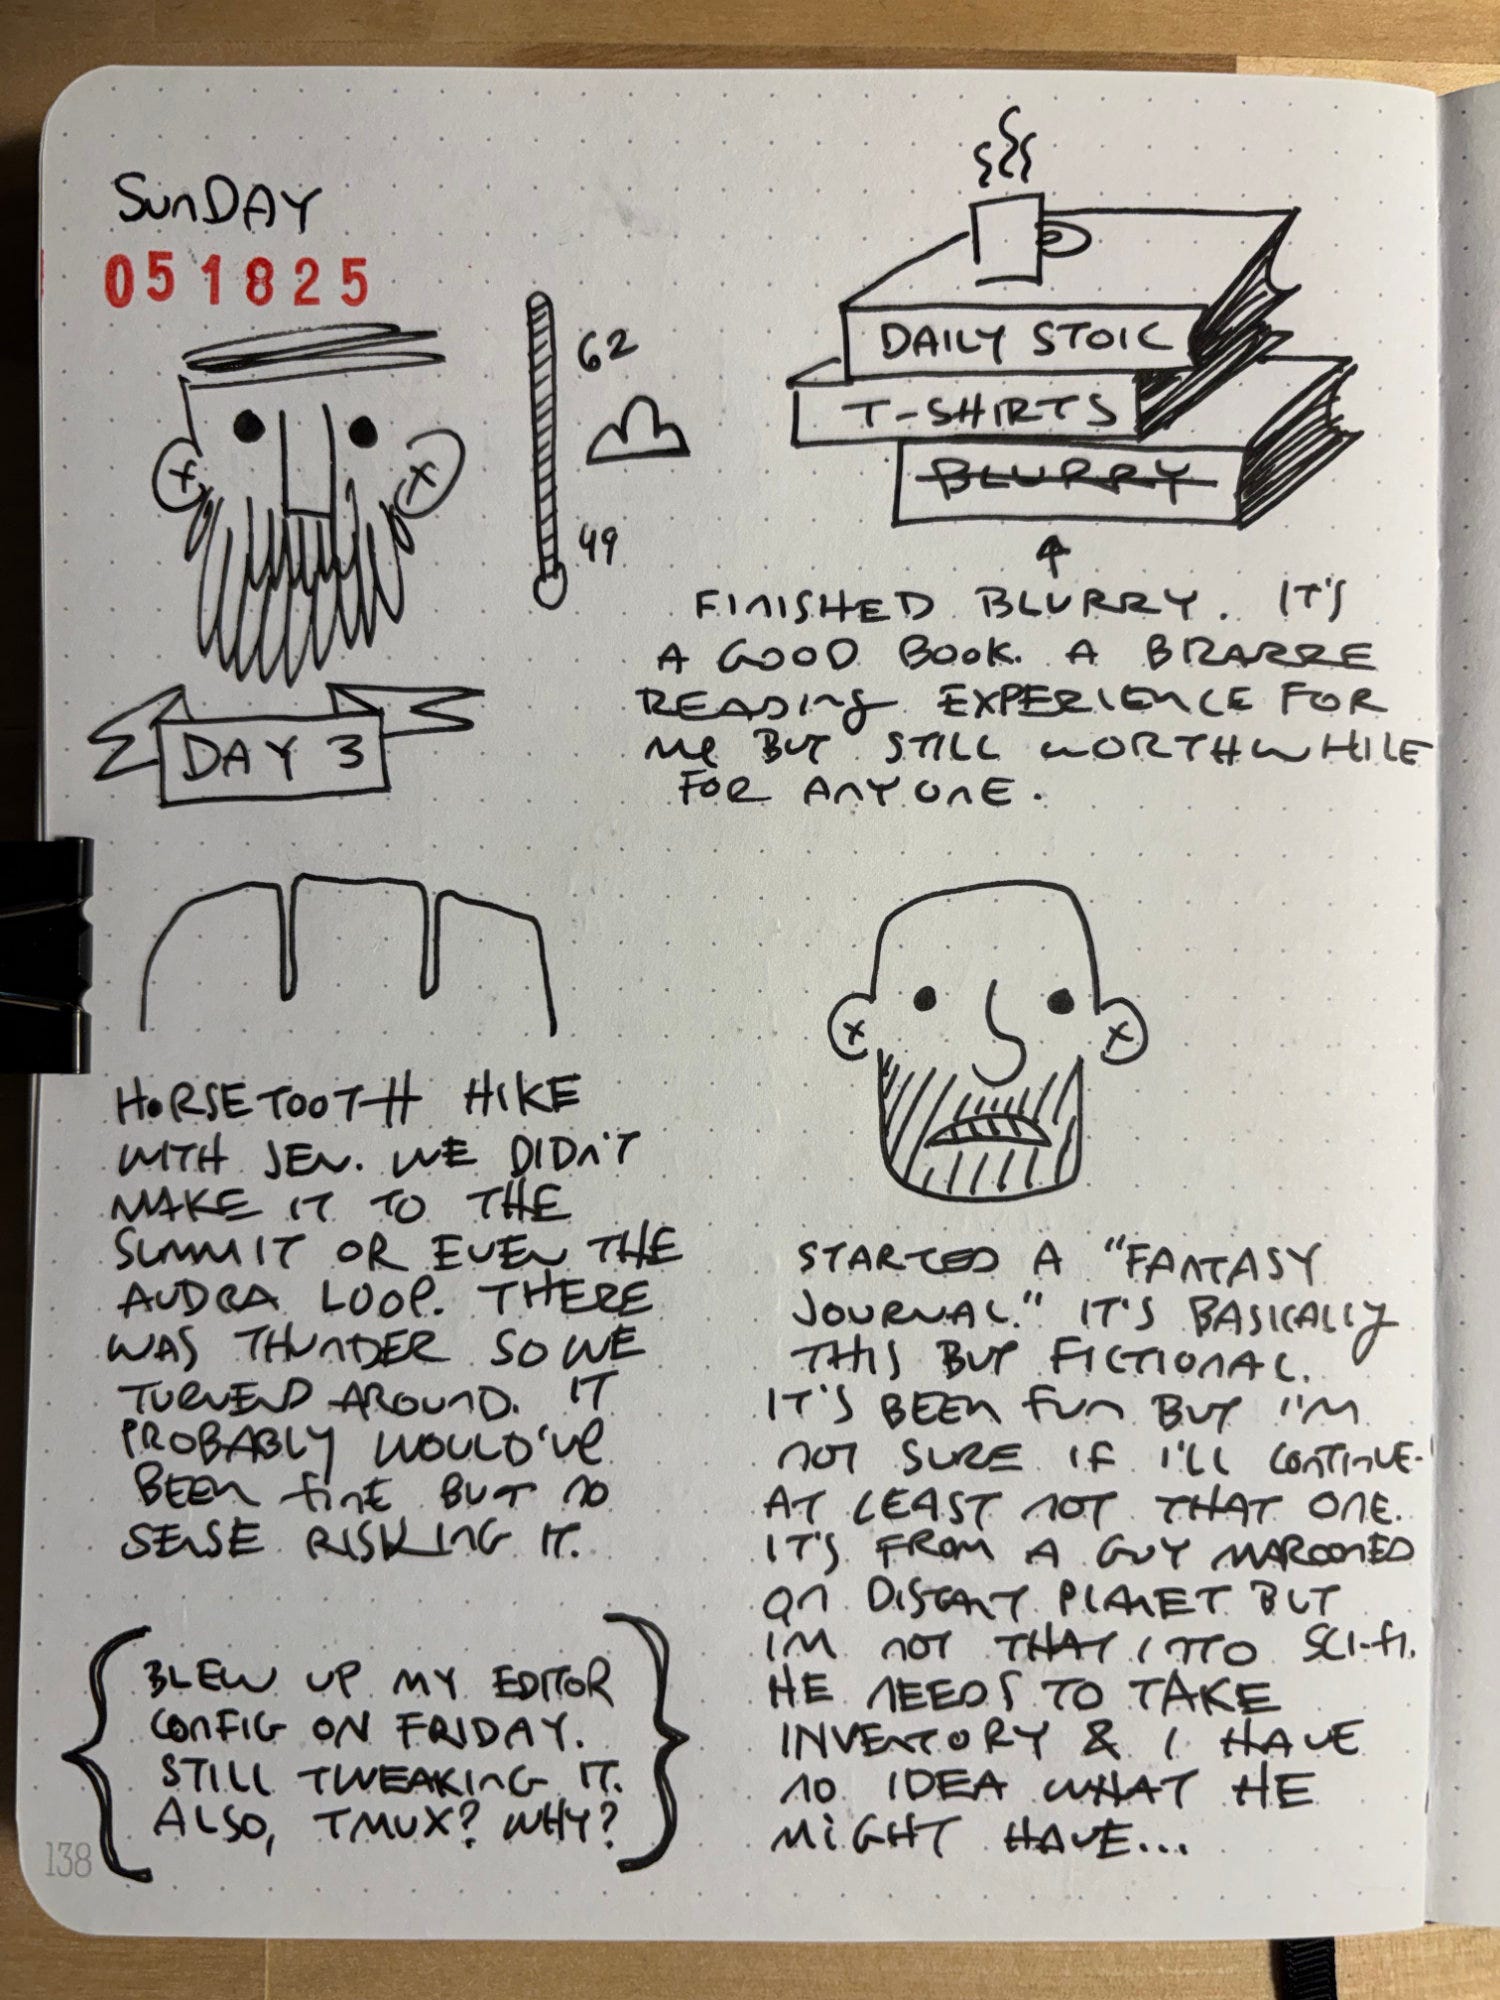 SUNDAY
051825
62
49
DAY 3
DAILY STOIC
T-SHIRTS
BLURRY
FINISHED BLURRY. IT'S
A GOOD BOOK. A BIZARRE
READING EXPERIENCE FOR
ME BUT STILL WORTHWHILE
FOR ANYONE.
HORSETOOTH HIKE
WITH JEN. WE DIDN'T
MAKE IT TO THE
SUMMIT OR EVEN THE
AUDRA LOOP. THERE
WAS THUNDER SO WE
TURNED AROUND. IT
PROBABLY WOULD'VE
BEEN FINE BUT NO
SENSE RISKING IT.
BLEW UP MY EDITOR
CONFIG ON FRIDAY.
STILL TWEAKING IT.
ALSO, TMUX? WHY?
STARTED A "FANTASY
JOURNAL." IT'S BASICALLY
THIS BUT FICTIONAL.
IT'S BEEN FUN BUT I'M
NOT SURE IF I'LL CONTINUE.
AT LEAST NOT THAT ONE.
IT'S FROM A GUY MAROONED
ON DISTANT PLANET BUT
IM NOT THAT INTO SCI-FI.
HE NEEDS TO TAKE
INVENTORY & I HAVE
NO IDEA WHAT HE
MIGHT HAVE...
138